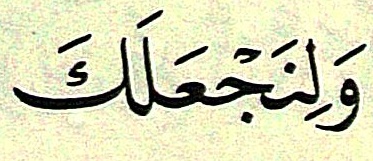 وَلِنَجْعَلَكَ